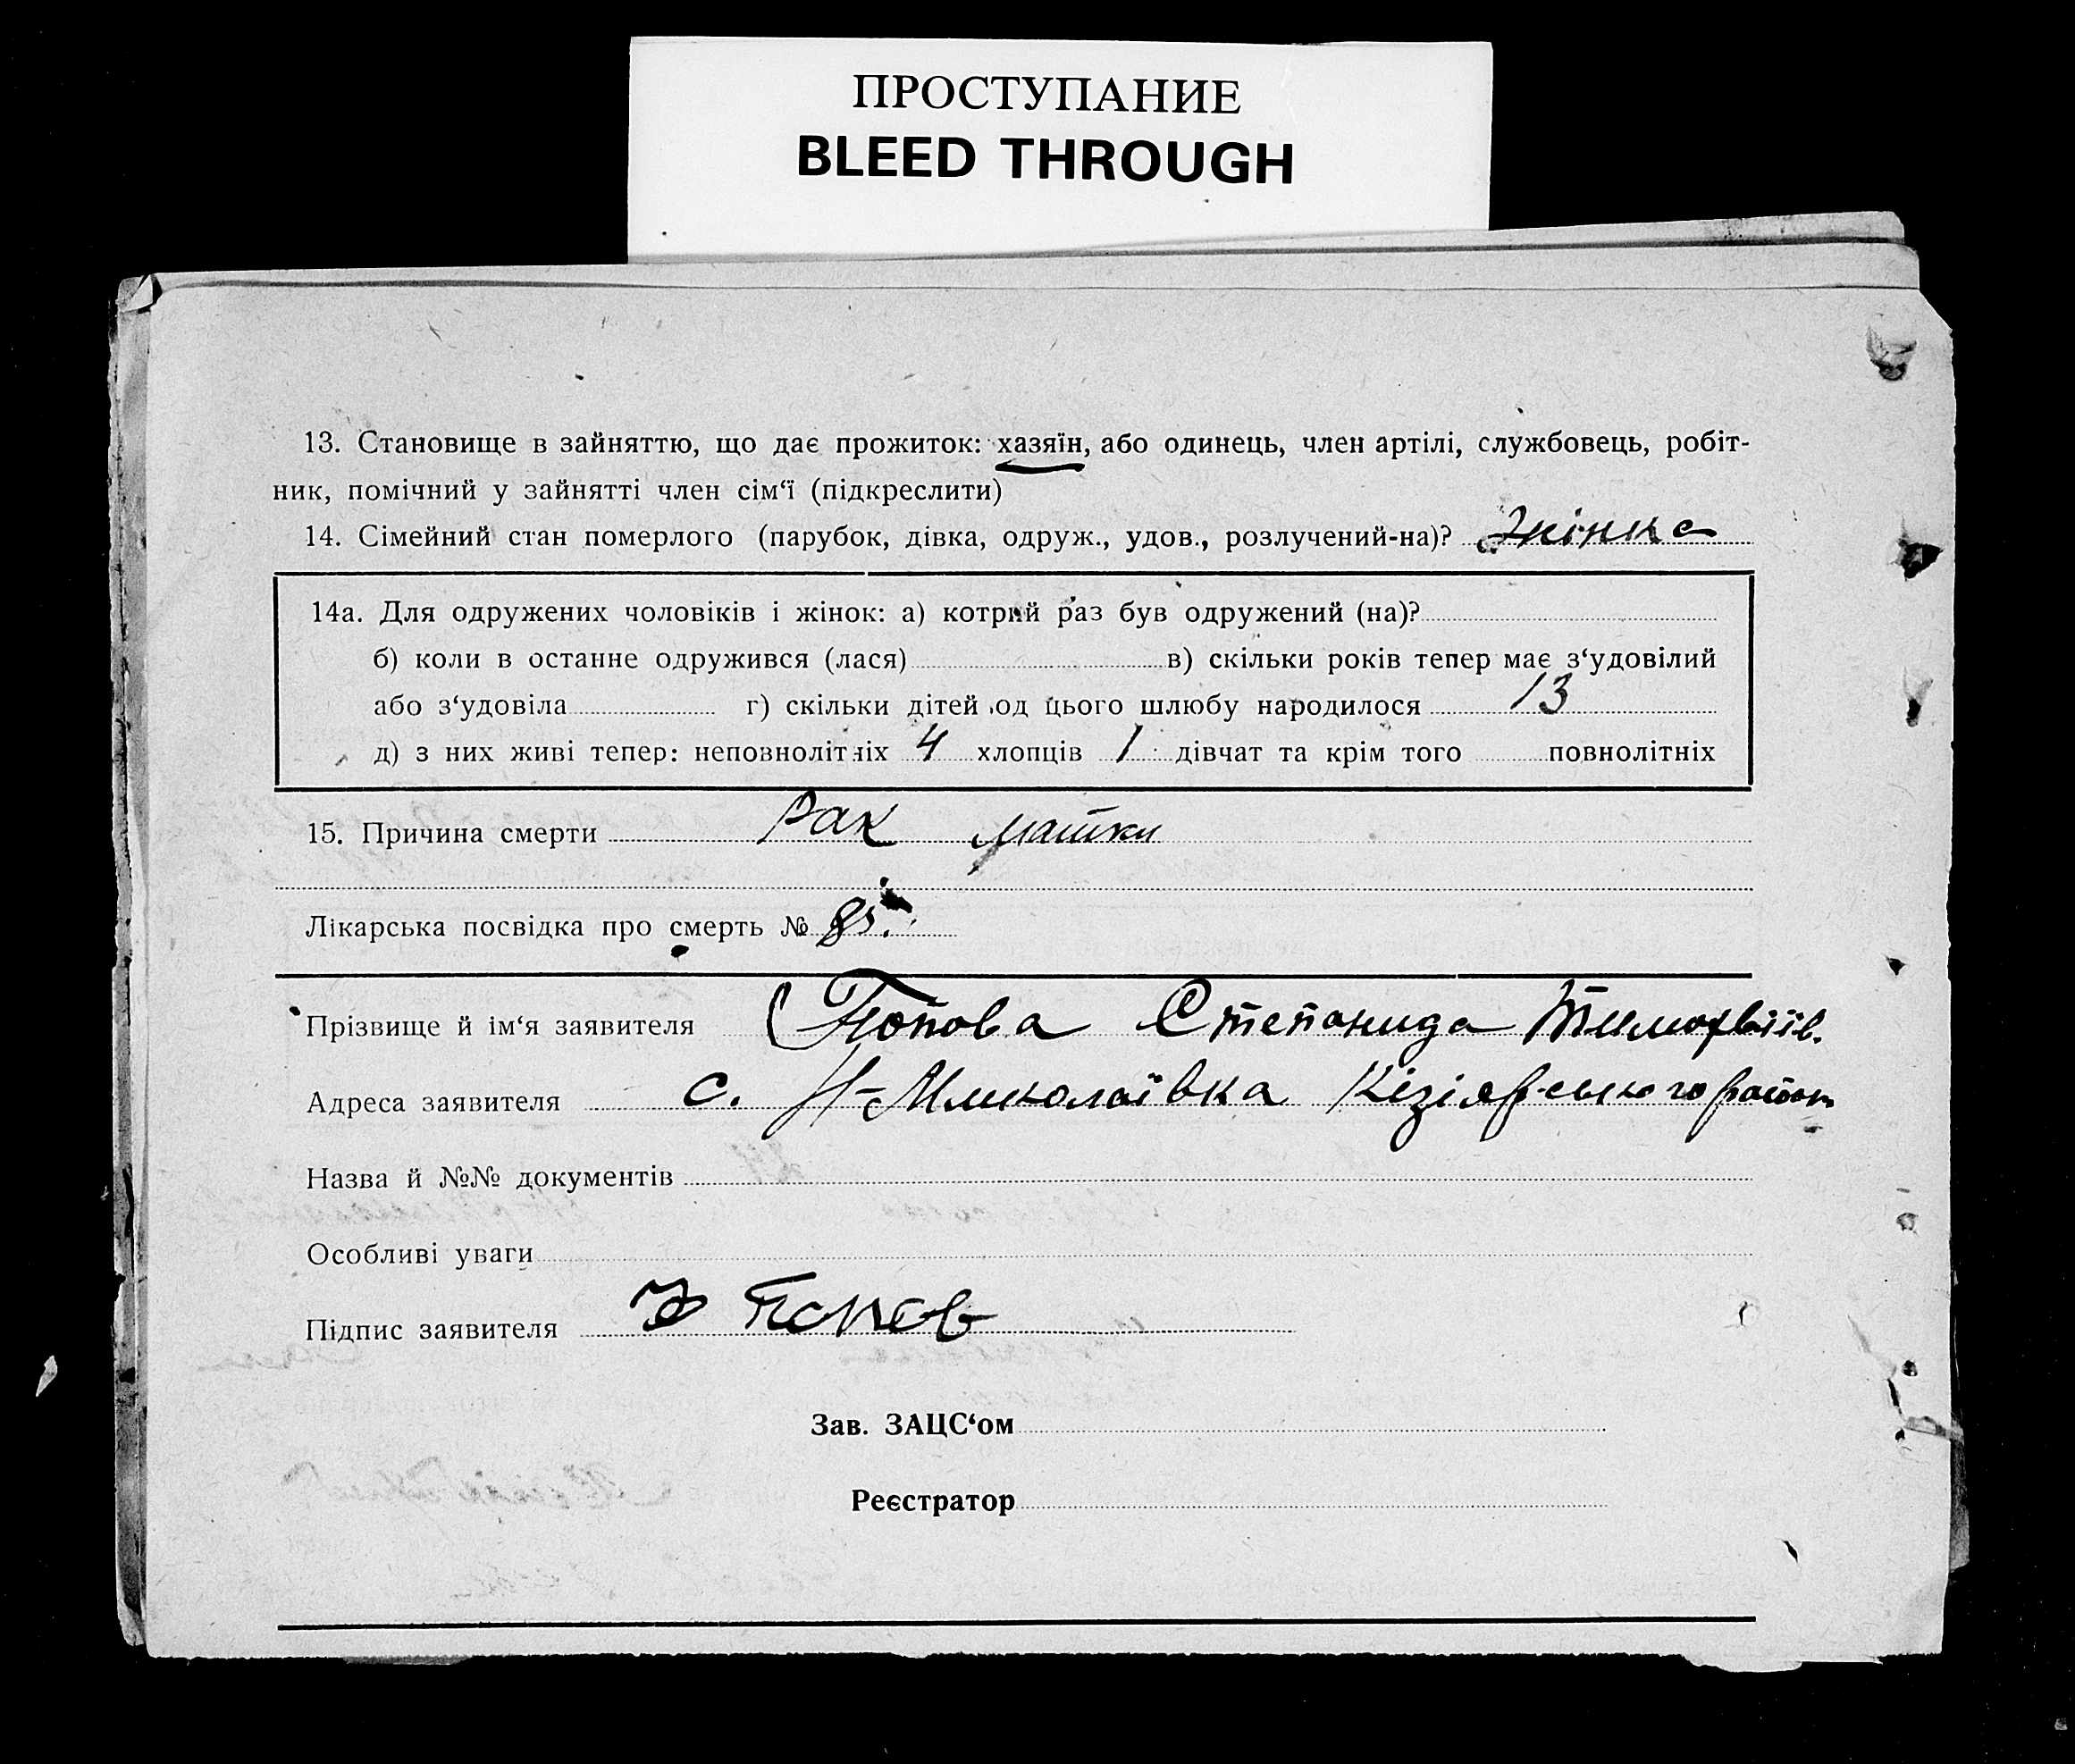 ПРОСТУПАНИЕ
BLEED THROUGH
13. Становище в зайняттю, що дає прожиток: хазяїн, або одинець, член артілі, службовець, робіт-
ник, помічний у зайнятті член сім‘ї (підкреслити)
14. Сімейний стан померлого (парубок, дівка, одруж., удов., розлучений-на)? Жінка
14а. Для одружених чоловіків і жінок: а) котрий раз був одружений (на)?
б) коли в останне одружився (лася) в) скільки років тепер має з‘удовілий
або з‘удовіла г) скільки дітей од цього шлюбу народилося 13
д) з них живі тепер: неповнолітніх 4 хлопців 1 дівчат та крім того повнолітніх
15. Причина смерти Рак матки
Лікарська посвідка про смерть № 85.
Прізвище й ім‘я заявителя Попова Степанида Тимофіїв.
Адреса заявителя с. Н-Миколаївка Кізіярського район
Назва й №№ документів
Особливі уваги
Підпис заявителя Попов
Зав. ЗАЦС‘ом
Реєстратор